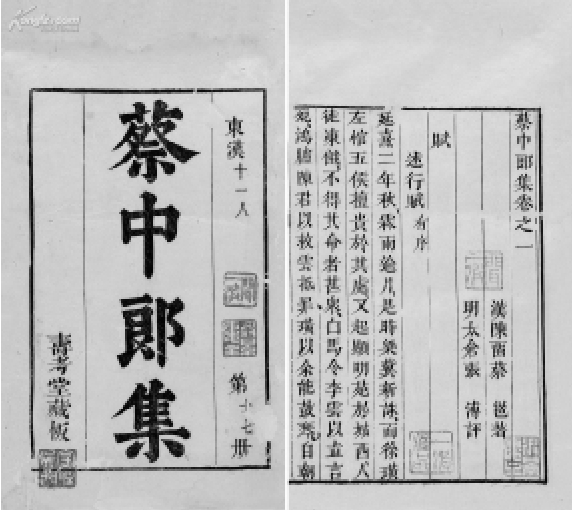 東漢十一人
第十七冊
蔡中郎集
壽考堂藏板
蔡中郎集卷之一
漢陳留蔡邕著
明太倉張溥評
賦
述行賦有序
延熹二年秋霖雨逾月是時梁冀新誅而徐璜
左悺五侯擅貴於其處又起顯明苑於城西人
徒凍餓不得其命者甚衆白馬令李雲以直言
死鴻臚陳君以救雲抵罪璜以余能鼓琴白朝